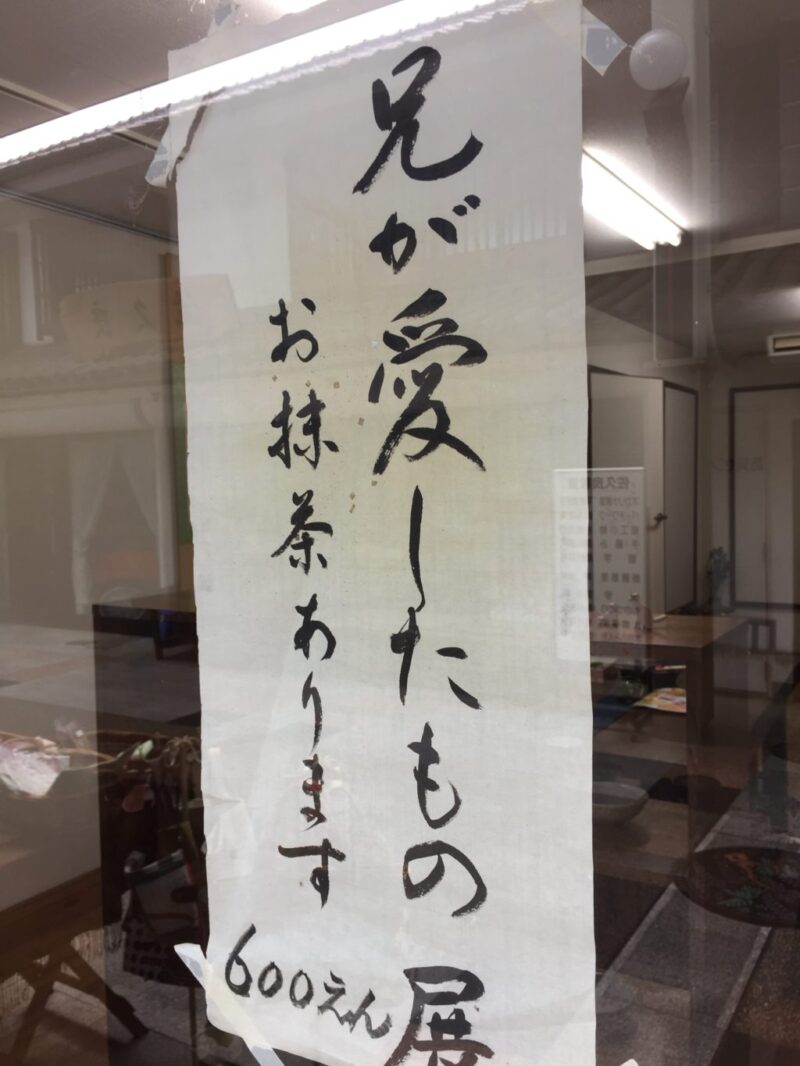 兄が愛したもの展
お抹茶あります
600えん